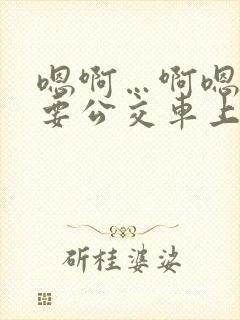 嗯啊…啊嗯
要公交车上
斫桂婆婆